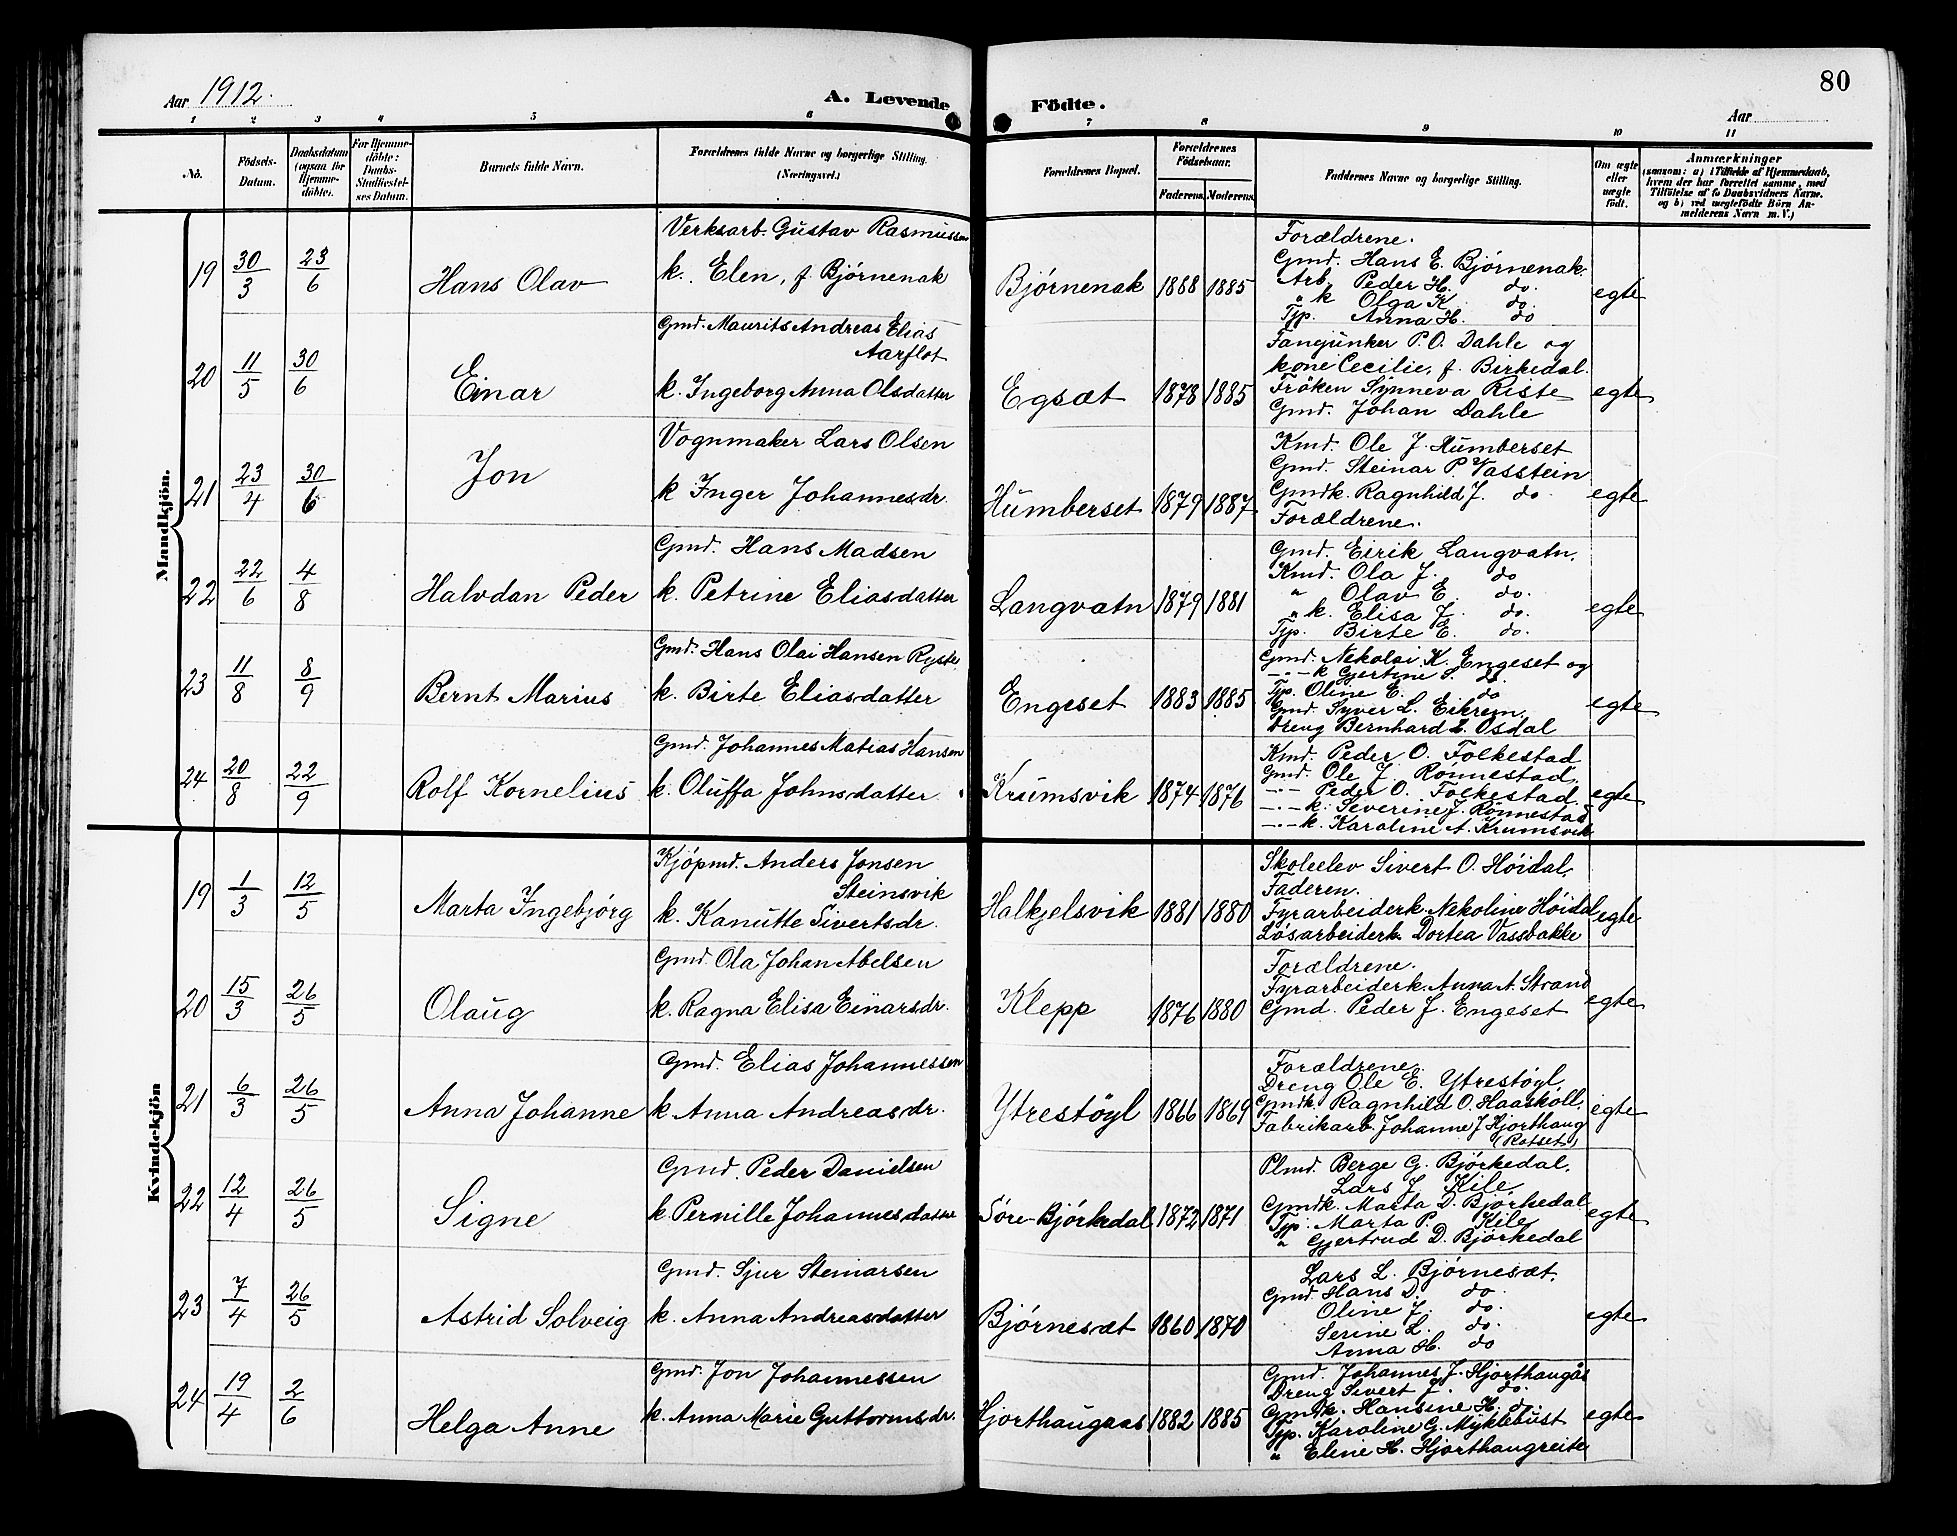 80
Aar 1912.
A. Levende Födte.
Aar
1 2 3 4 5 6 7 8 9 10 11
No.
Födsels-Datum.
Daabsdatum (ogsaa for Hjemme-döbte).
For Hjemme-döbte: Daabs-Stadfæstel-ses Datum.
Barnets fulde Navn.
Forældrenes fulde Navne og borgerlige Stilling. (Næringsvei.)
Forældrenes Bopæl.
Forældrenes Födselsaar.
Faderens. Moderens.
Faddernes Navne og borgerlige Stilling.
Om ægte eller uægte födt.
Anmærkninger
(saasom: a) i Tilfælde af Hjemmedaab,
hvem der har forrettet samme, med
Tilföielse af to Daabsvidners Navne.
og b) ved uægtefödte Börn An-
melderens Navn m. V.)
Mandkjön.
19 30/3 23/6 Hans Olav
Verksarb. Gustav Rasmussen
k. Elen, f Bjørnenak
Bjørnenak 1888 1885
Forældrene.
Gmd. Hans E. Bjørnenak.
Arb. Peder H. do.
" k Olga K. do.
Tjp. Anna H. do
egte
20 11/5 30/6 Einar
Gmd. Maurits Andreas Elias
Aarflot
k. Ingeborg Anna Olsdatter
Egsæt 1878 1885
Fanejunker P. O. Dahle og
kone Cecilie, f. Birkedal.
Fröken Synneva Riste
Gmd. Johan Dahle
egte
21 23/4 30/6 Jon
Vognmaker Lars Olsen
k Inger Johannesdr.
Humberset 1879 1887
Kmd. Ole J. Humberset
Gmd. Steinar P Vasstein
Gmdk. Ragnhild J. do.
Forældrene.
egte
22 22/6 4/8 Halvdan Peder
Gmd. Hans Madsen
k. Petrine Eliasdatter
Langvatn 1879 1881
Gmd. Eirik Langvatn.
Kmd. Ola J. do
" Olav E. do.
" k. Elisa J. do.
Tjp. Birte E. do.
egte
23 11/8 8/9 Bernt Marius
Gmd. Hans Olai Hansen Ryste
k. Birte Eliasdatter
Engeset 1883 1885
Gmd. Nekolai K. Engeset og
-"- k Gjertine S. do.
Tjp. Oline E. do
Gmd. Syver L. Eikrem.
Dreng Bernhard L. Osdal
egte
24 20/8 22/9 Rolf Kornelius
Gmd. Johannes Matias Hansen
k. Oluffa Johnsdatter.
Krumsvik 1874 1876
Kmd. Peder O. Folkestad
Gmd. Ole J. Rönnestad.
-"- Peder O. Folkestad.
-"- k. Severine J. Rönnestad
-"- k. Karoline A. Krumsvik
egte
Kvindekjön
19 1/3 12/5 Marta Ingebjörg
Kjöpmd. Anders Jonsen
Steinsvik
k. Kanutte Sivertsdr.
Halkjelsvik 1881 1880
Skoleelev Sivert O. Höidal.
Faderen.
Fyrarbeiderk. Nekoline Höidal
Lösarbeiderk. Dortea Vassbakke
egte
20 15/3 26/5 Olaug
Gmd. Ola Johan Abelsen
k. Ragna Elisa Einarsdr.
Klepp 1876 1880
Forældrene.
Fyrarbeiderk. Anna A. Strand
Gmd. Peder J. Engeset
egte
21 6/3 26/5 Anna Johanne
Gmd. Elias Johannessen
k Anna Andreasdr.
Ytrestöyl 1866 1869
Forældrene.
Dreng Ole E. Ytrestöyl.
Gmdk. Ragnhild O. Haaskoll.
Fabrikarb. Johanne J Hjorthaug
(Rotset)
egte
22 12/4 26/5 Signe
Gmd. Peder Danielsen
k. Pernille Johannesdatter
Søre-Bjørkedal 1872 1871
Plmd. Berge G. Björkedal.
Lars J Kile
Gmdk. Marta D. Björkedal
Tjp. Marta P. Kile
" Gjertrud D. Björkedal
egte
23 7/4 26/5 Astrid Solveig
Gmd. Sjur Steinarsen
k. Anna Andreasdatter
Bjørnesæt 1860 1870
Lars L. Bjørnesæt.
Gmd. Hans D. do.
Oline J. do.
Serine L. do.
Anna H. do
egte
24 19/4 2/6 Helga Anne
Gmd. Jon Johannessen
k. Anna Marie Guttormsdr.
Hjorthaugaas 1882 1885
Gmd. Johannes J. Hjorthaugås
Dreng Sivert J. do.
Gmdk. Hansine H. do.
Tjp. Karoline G. Myklebust
" Eline H. Hjorthaugreite
egte